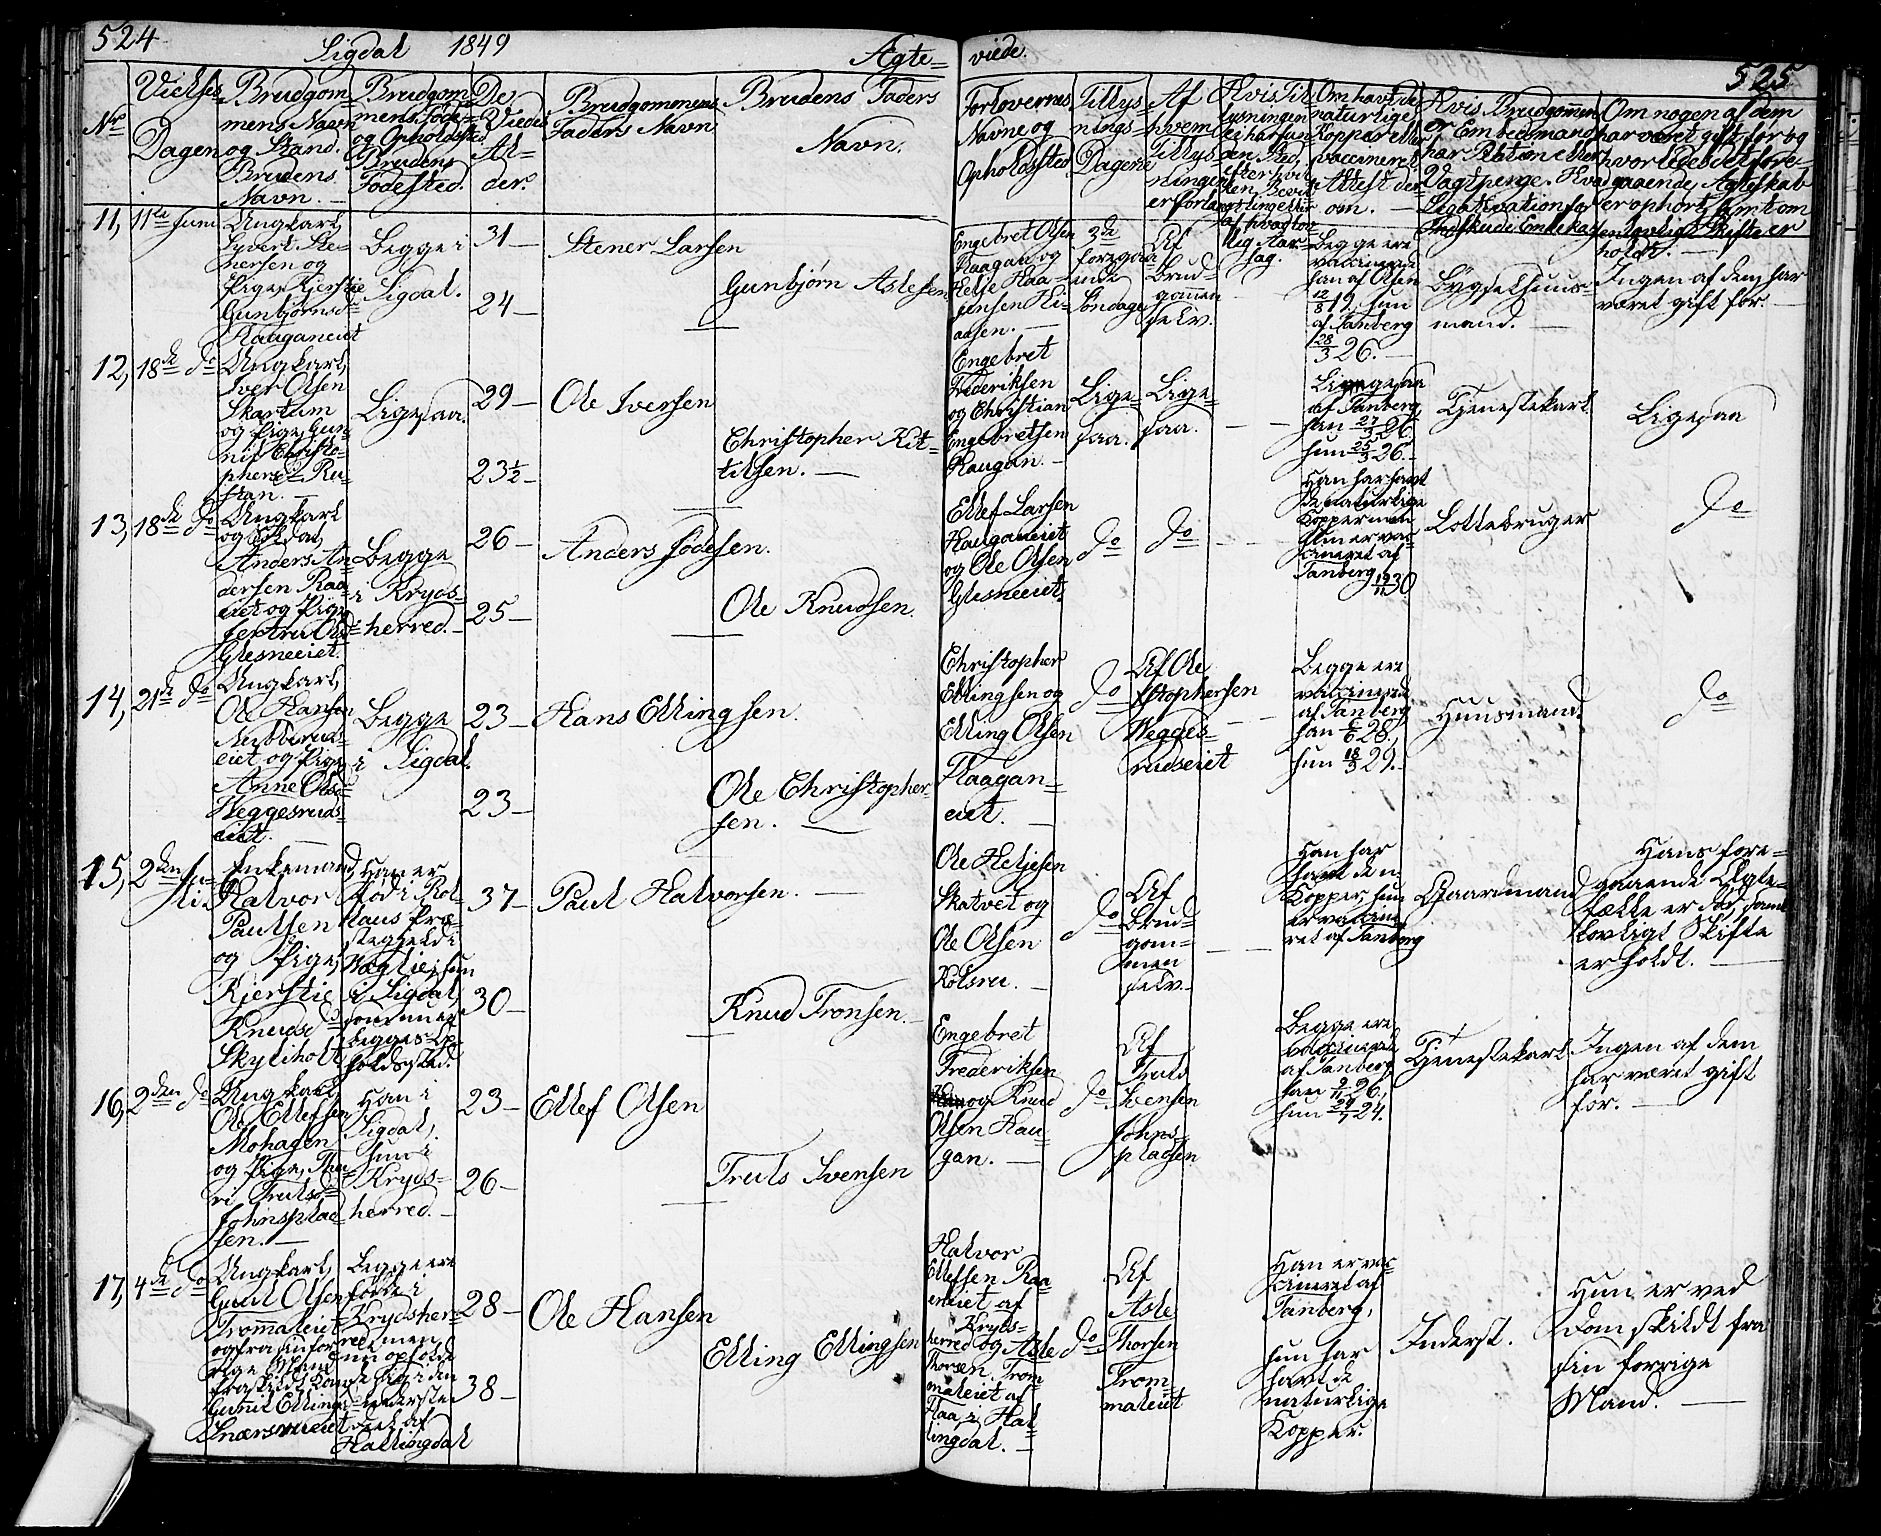 524
Sigdal 1849
Ægte=
viede.
525
Nr
Vielses
Dagen
Brudgom
mens Navn
og Stand.
Brudens
Navn.
Brudgom
mens Føde=
og Opholdsted.
Brudens
Fødested.
De
Viedes
Al=
der.
Brudgommens
Faders Navn
Brudens Faders
Navn.
Forlovernes
Navne og
Opholdsted.
Tillys
nings=
Dagene
Af
hvem
Tillys
ningen
er forlangt
Hvis Til
lysningen
ei har fun
den Sted,
Om havt de
naturlige
Kopper eller
vaccineret
Attest der
om.
Hvis Brudgommen
er Embedsmand
har Pension eller
Om nogen af dem
har været gift før og
hvorledes det fore=
gaaende Ægteskab
er ophørt, samt om
lovligt Skifte er
holdt.
11,
11te Juni
Ungkarl,
Syvert Ste=
nersen og
Pige, Kjerstie
Gunbjørnsd
Haaganeiet
Begge i
Sigdal.
31
24
Stener Larsen
Gunbjørn Aslesen
Engebret Olsen
Haagan og
Helje Haa=
gensen Li=
aasen.
3de
foregaa
ende
Søndage
Af
Brud=
gommen
selv.
Begge ere
vaccinerede
han af Olsen
12/8 19, hun
af Tanberg
28/3 26.
Bygselhuus=
mand.
Ingen af dem har
været gift før
12,
18de do
Ungkarl,
Iver Olsen
Skartum
og Pige, Gun=
nil Christo=
phersd Ru=
stan.
Ligesaa.
29
23½
Ole Iversen
Christopher Kit=
tilsen.
Engebret
Frederiksen
og Christian
Engebretsen
Haugan.
Lige=
saa.
Lige=
saa.
Ligesaa
af Tanberg,
han 27/3 26
hun 25/3 26.
Tjenestekarl
Ligesaa
13,
18de do
Ungkarl
og Soldat,
Anders An=
dersen Raa=
eiet og Pige
Jertru Olsd
Glesneeiet.
Begge
i Kryds=
herred.
26
25
Anders Jødesen.
Ole Knudsen.
Ellef Larsen
Haugsneeiet
og Ole Olsen
Glesneeiet.
do
do
Han har havt
de naturlige
Kopper men
hun er vac=
cineret af
Tanberg 12/11 30
Lottebruger
do
14,
21de do
Ungkarl,
Ole Hansen
Nubberud=
eiet og Pige
Anne Olsd
Heggesruds=
eiet.
Begge
i Sigdal.
23
23
Hans Ellingsen.
Ole Christopher=
sen.
Christopher
Ellingsen og
Elling Olsen
Haagan=
eiet.
do
Af Ole
Christophersen
Hegges=
rudseiet
Begge ere
vaccinerede
af Tanberg,
han 5/6 28,
hun 18/3 29.
Huusmand.
do
15,
2den Ju=
li.
Enkemand,
Halvor
Paulsen
og Pige,
Kjerstie
Knudsd
Skytiholt
Han er
født i Rol=
laus Præ=
stegjeld i
Nagtie, hun
i Sigdal,
som nu er
begges Op=
holdssted.
37
30
Paul Halvorsen.
Knud Tronsen.
Ole Heljesen
Skatvet og
Ole Olsen
Kolsru.
do
Af
Brud=
gom=
men
selv.
Han har
havt den
Kopper, hun
er vaccine
ret af Tanberg
Gaardmand
Hans fore=
gaaende Ægte=
fælle er død, samt
lovligt Skifte
er holdt.
16,
2den do
Ungkarl,
Ole Ellefsen
Mohagen
og Pige, Thu=
ri Trulsd
Johnsplad=
sen.
Han i
Sigdal,
hun i
Kryds=
herred.
23
26
Ellef Olsen
Truls Svensen
Engebret
Frederiksen
og Knud
Olsen Hau=
gan.
do
Af
Truls
Svensen
Johns=
pladsen
Begge ere
vaccinerede
af Tanberg
han 9/11 26,
hun 29/7 24.
Tjenestekarl
Ingen af dem
har været gift
før.
17,
4de do
Ungkarl,
Guul Olsen
Trommaleiet
og fra sin for
rige Mand
fraskildt Kone
Gunil Ellings=
Snærsrueiet
Begge ere
fødte i
Krydsher=
red, men
nu ophold
de sig i den
nederste
Deel af
Hallingdal
28
38
Ole Hansen
Elling Ellingsen
Halvor
Ellefsen Raa
eneiet af
Kryds=
herred og Asle
Thorsen, Trom=
maleiet af
Flaa i Hal
lingdal.
do
Af
Asle
Thorsen
Trom=
maleiet
Han er vac=
cineret af
Tanberg,
hun har
havt de
naturlige
Kopper.
Inderst.
Hun er ved
Dom skildt fra
sin forrige
Mand.